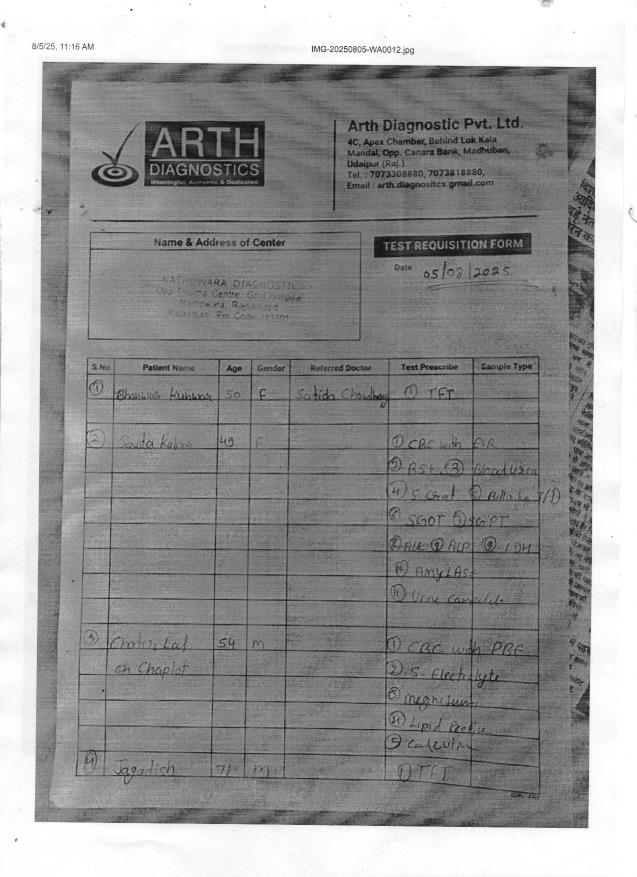 8/5/25, 11:16 AM
IMG-20250805-WA0012.jpg
ARTH
DIAGNOSTICS
Meaningful, Authentic & Dedicated
Arth Diagnostic Pvt. Ltd.
4C, Apex Chamber, Behind Lok Kala
Mandal, Opp. Canara Bank, Madhuban,
Udaipur (Raj.)
Tel. : 7073308880, 7073818880,
Email : arth.diagnositcs.gmail.com
Name & Address of Center
TEST REQUISITION FORM
Date : 05/08/2025
DIAGNOSTIC
Opp Trauma Centre, Govt Hospital
Nathdwara, Rajsamand
Rajasthan, Pin Code
S.No. Patient Name Age Gender Referred Doctor Test Prescribe Sample Type
① Bhanwar Kunwar 50 F Satish Choudhary ① TFT
② Savita 49 F ① CBC with ESR
② BSF ③ Blood Urea
④ S Creat ⑤ T/D
⑥ SGOT ⑦ SGPT
⑨ ALP ⑨ LDH
⑩ AMYLASE
⑪ Urine
③ Chater Lal 54 M ① CBC with PBF
Chaplot ② S-Electrolyte
③
④ Lipid Profile
⑤
④ Jagadish 71 M ① TFT